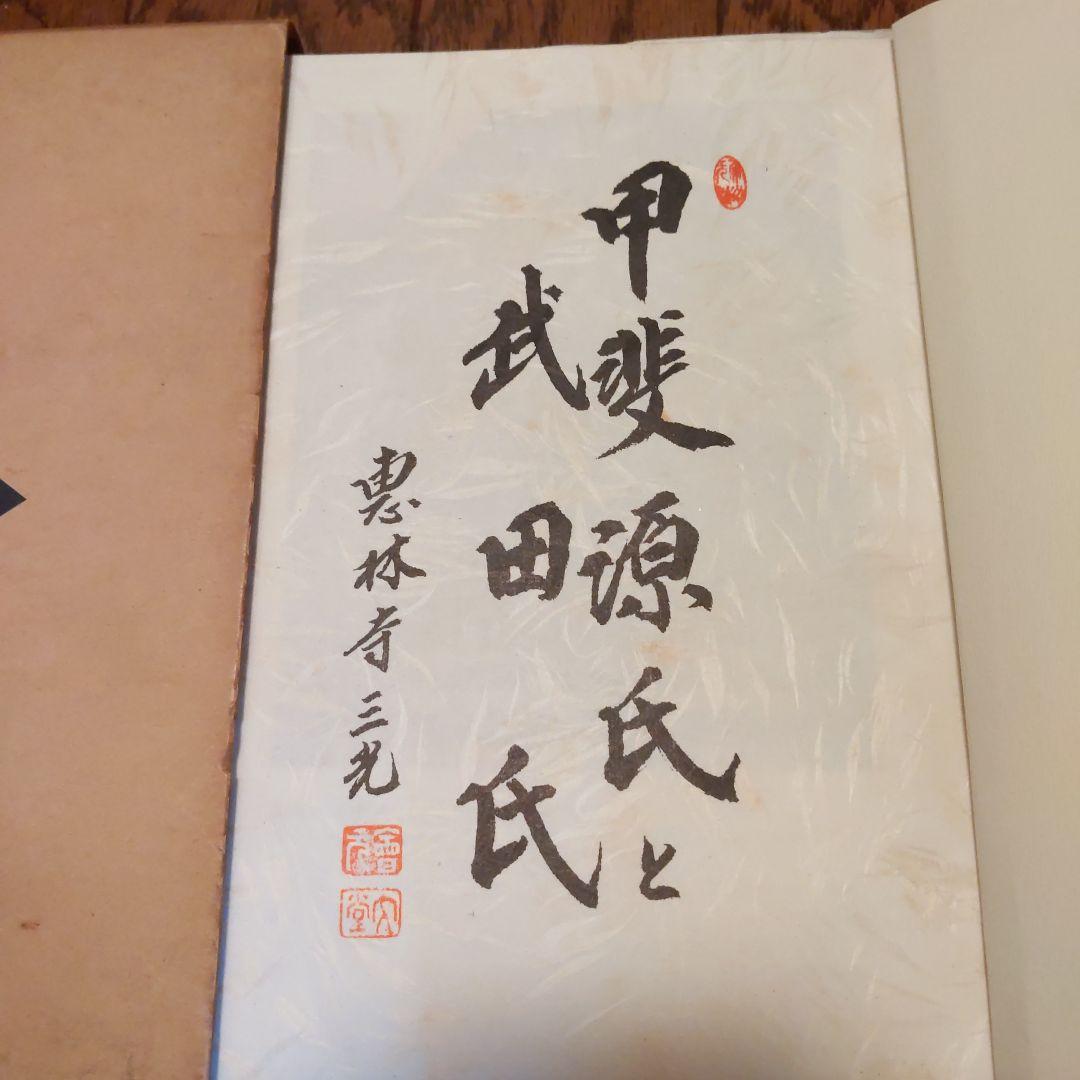 甲斐源氏と
武田氏
惠林寺三光